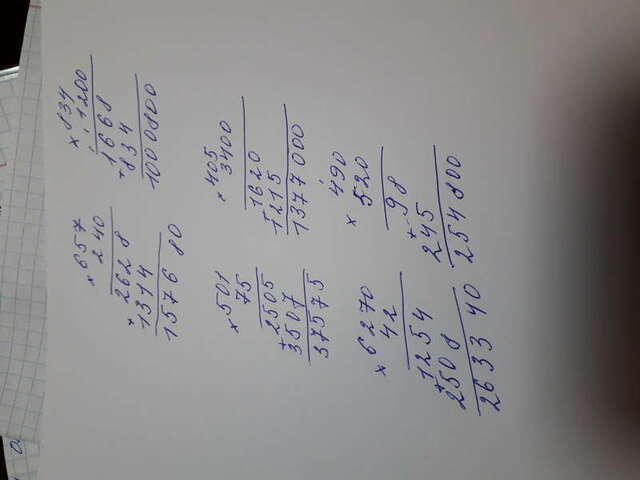 × 657
240
2628
+
1314
157680
× 834
1200
1668
+
834
1000800
× 501
75
2505
+
3507
37575
× 405
3400
1620
+
1215
1377000
× 6270
42
1254
+
2508
263340
× 490
520
98
+
245
254800